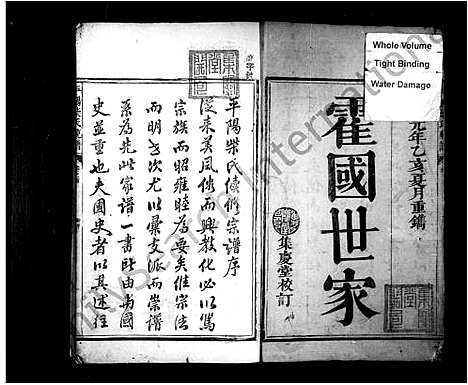 Whole Volume
Tight Binding
Water Damage
元年乙亥夏月重鐫
霍國世家
集慶堂校訂
平陽柴氏續修宗譜序
從來美風俗而興教化必以篤
宗族而昭雍睦為要矣維宗法
而明之次尤以彙支派而崇譜
系為先此家譜一書所由與國
史並重也夫國史者以其述往